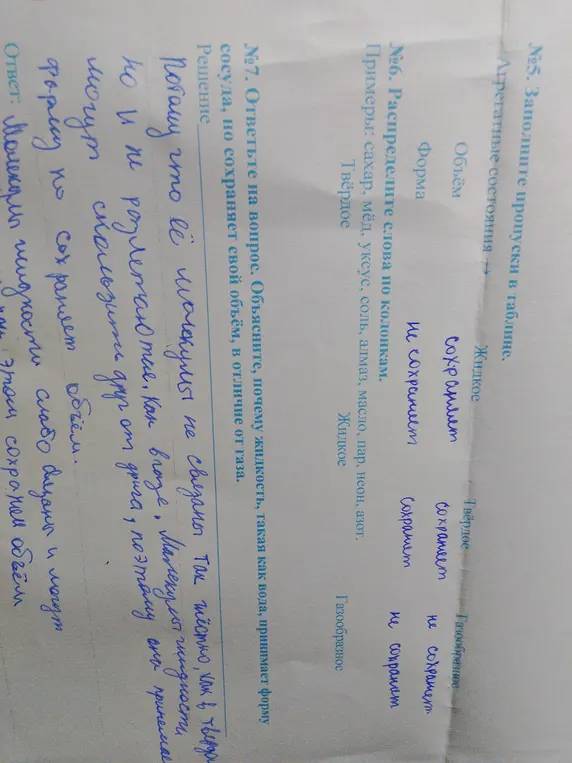 №5. Заполните пропуски в таблице.
Агрегатные состояния → Жидкое Твёрдое Газообразное
Объём сохраняет сохраняет не сохраняет
Форма не сохраняет сохраняет не сохраняет
№6. Распределите слова по колонкам.
Примеры: сахар, мёд, уксус, соль, алмаз, масло, пар, неон, азот.
Твёрдое Жидкое Газообразное
№7. Ответьте на вопрос. Объясните, почему жидкость, такая как вода, принимает форму
сосуда, но сохраняет свой объём, в отличие от газа.
Решение
Потому что её молекулы не связаны так жёстко, как в твердо
но и не разлетаются, как в газе. Молекулы жидкости
могут скользить друг от друга, поэтому она принимае
форму но сохраняет объём.
Ответ: Молекулы жидкости слабо связаны и могут
при этом сохраняя объём